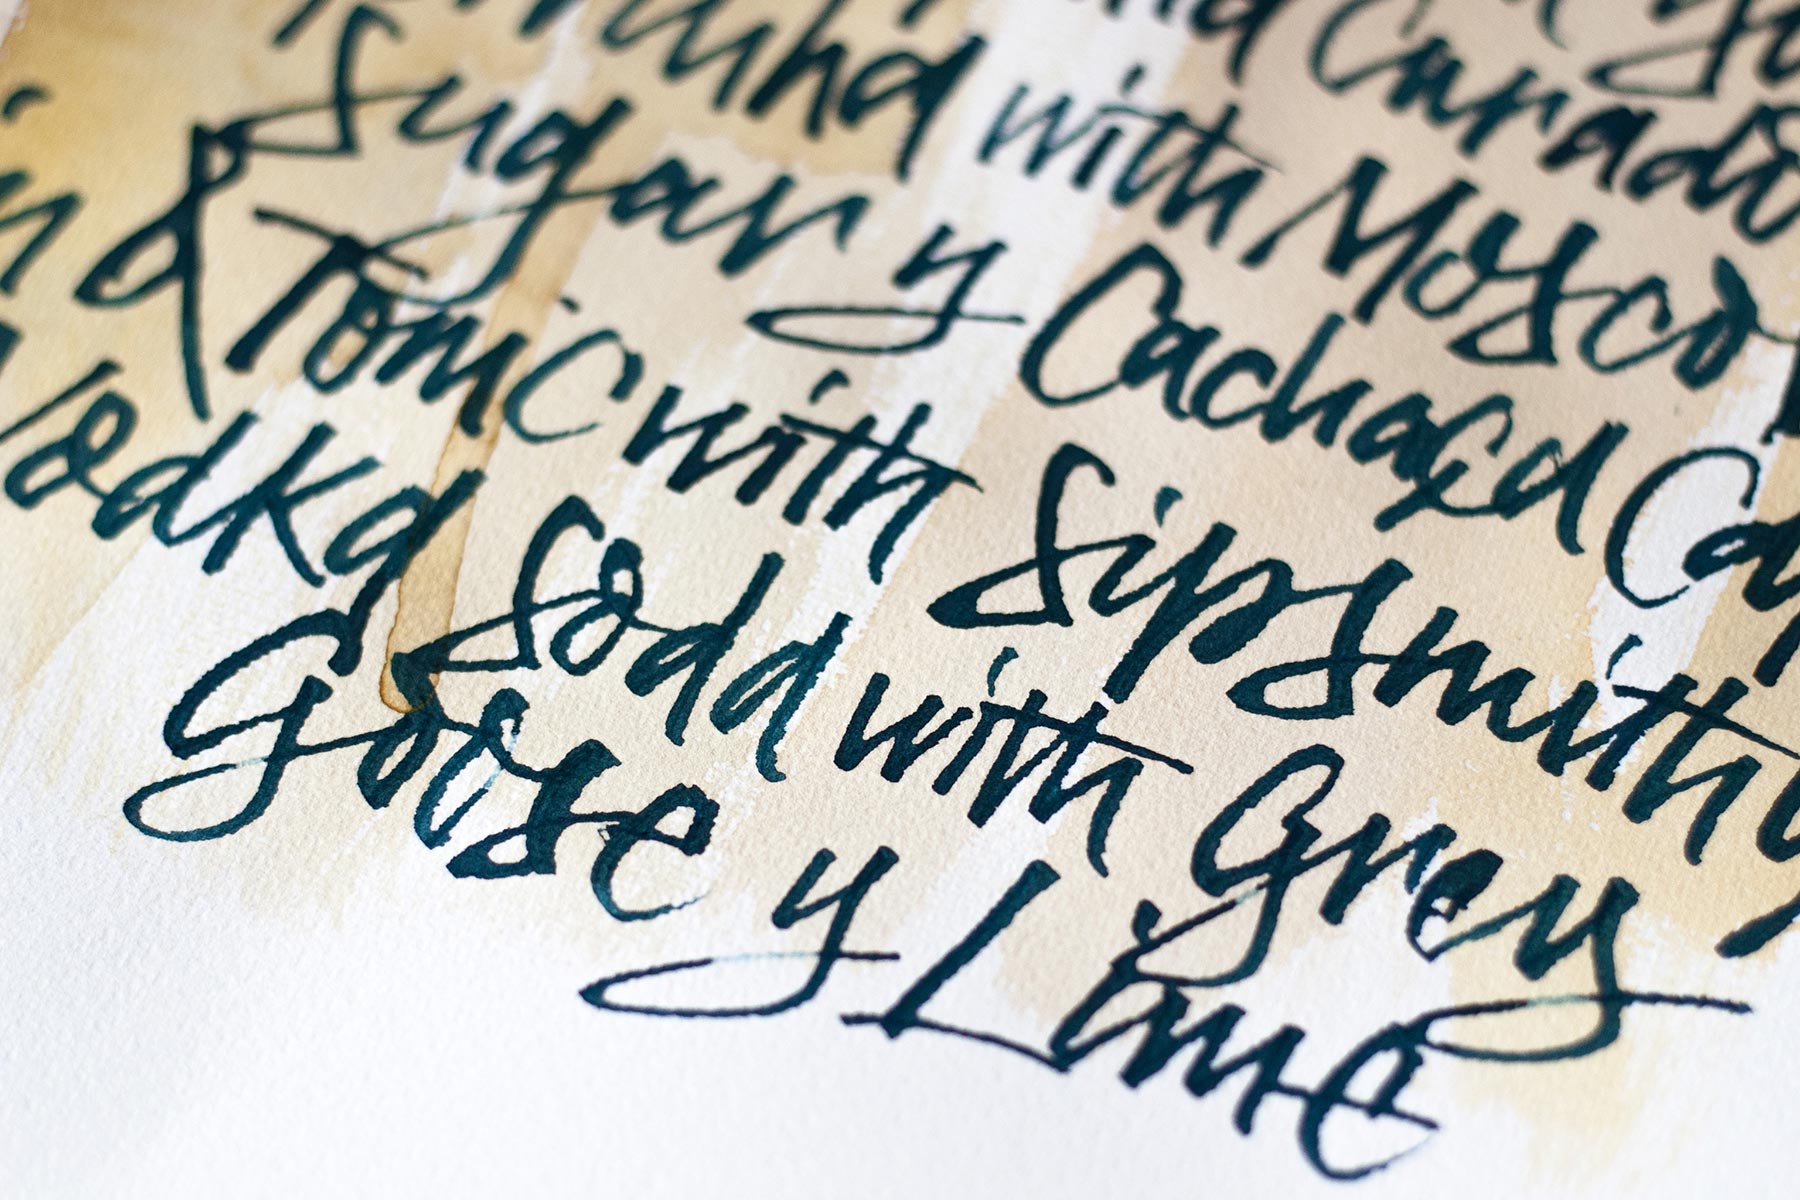 Curado
with Mosco
Sugar y Cachaça Ca
in & Tonic with Sipsmith
Vodka Soda with Grey
Goose y Lime